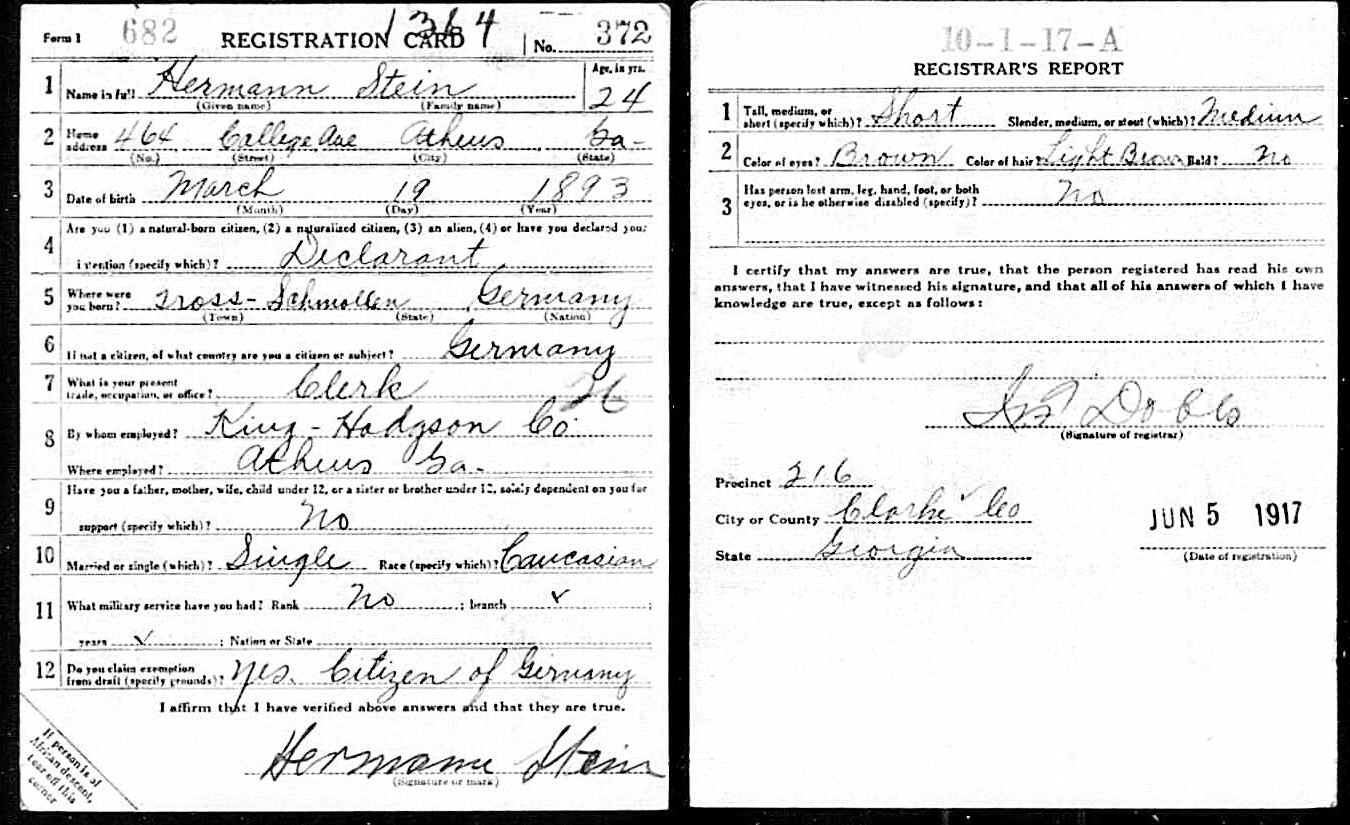 1364
Form 1 682 REGISTRATION CARD No. 372
1 Name in full Hermann Stein Age, in yrs. 24
(Given name) (Family name)
2 Home address 464 College Ave Athens Ga-
(No.) (Street) (City) (State)
3 Date of birth March 19 1893
(Month) (Day) (Year)
4 Are you (1) a natural-born citizen, (2) a naturalized citizen, (3) an alien, (4) or have you declared your
intention (specify which)? Declarant
5 Where were you born? Gross-Schmollen Germany
(Town) (State) (Nation)
6 If not a citizen, of what country are you a citizen or subject? Germany
7 What is your present trade, occupation, or office? Clerk 26
8 By whom employed? King-Hodgson Co
Where employed? Athens Ga-
9 Have you a father, mother, wife, child under 12, or a sister or brother under 12, solely dependent on you for
support (specify which)? No
10 Married or single (which)? Single Race (specify which)? Caucasian
11 What military service have you had? Rank No ; branch ✓ ;
years ✓ ; Nation or State
12 Do you claim exemption from draft (specify grounds)? Yes. Citizen of Germany
I affirm that I have verified above answers and that they are true.
Hermann Stein
(Signature or mark)
If person is of
African descent,
tear off this
corner
10-1-17-A
REGISTRAR'S REPORT
1 Tall, medium, or short (specify which)? Short Slender, medium, or stout (which)? Medium
2 Color of eyes? Brown Color of hair? Light Brown Bald? No
3 Has person lost arm, leg, hand, foot, or both
eyes, or is he otherwise disabled (specify)? No
I certify that my answers are true, that the person registered has read his own
answers, that I have witnessed his signature, and that all of his answers of which I have
knowledge are true, except as follows:
Dobbs
(Signature of registrar)
Precinct 216
City or County Clarke Co
State Georgia
JUN 5 1917
(Date of registration)